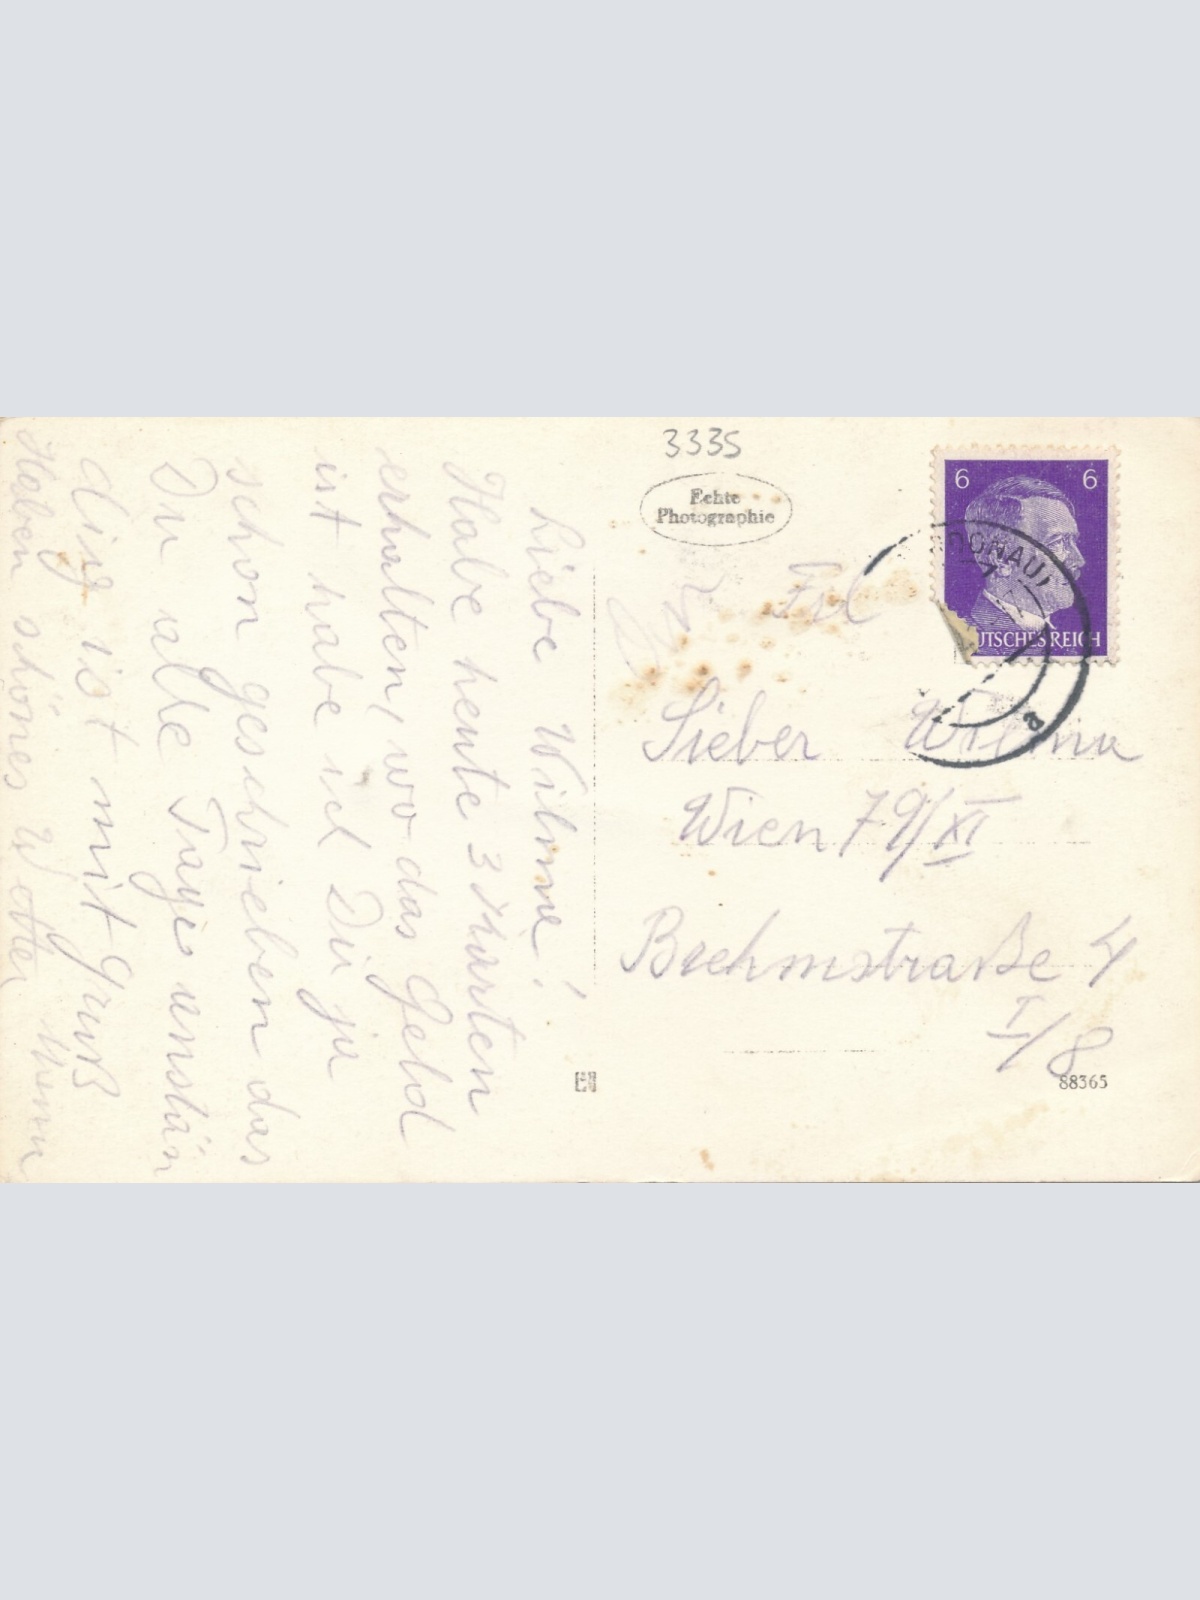 3335
Echte
Photographie
6 6
DONAU
DEUTSCHES REICH
a
Frl
Sieber Wilma
Wien 79/XI
Brehmstraße 4
I/8
88365
Liebe Wilma!
Habe heute 3 Karten
erhalten, wo das Geld
ist habe ich Dir ja
schon geschrieben das
Du alle Tage umstän
dig ist mit Gruß
Haben schönes Wetter